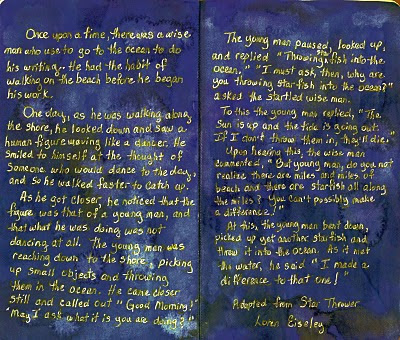 Once upon a time, there was a wise
man who use to go to the ocean to do
his writing. He had the habit of
walking on the beach before he began
his work.
One day, as he was walking along
the shore, he looked down and saw a
human figure waving like a dancer. He
smiled to himself at the thought of
someone who would dance to the day,
and so he walked faster to catch up.
As he got closer, he noticed that the
figure was that of a young man, and
that what he was doing was not
dancing at all. The young man was
reaching down to the shore, picking
up small objects and throwing
them in the ocean. He came closer
still and called out "Good Morning!"
"May I ask what it is you are doing?"
The young man paused, looked up,
and replied "Throwing starfish into the
ocean." "I must ask, then, why are
you throwing starfish into the ocean?"
asked the startled wise man.
To this the young man replied, "The
Sun is up and the tide is going out.
If I don't throw them in, they'll die."
Upon hearing this, the wise man
commented, "But young man, do you not
realize there are miles and miles of
beach and there are starfish all along
the miles? You can't possibly make
a difference!"
At this, the young man bent down,
picked up yet another starfish and
threw it into the ocean. As it met
the water, he said "I made a
difference to that one!"
Adapted from Star Thrower
Loren Eiseley